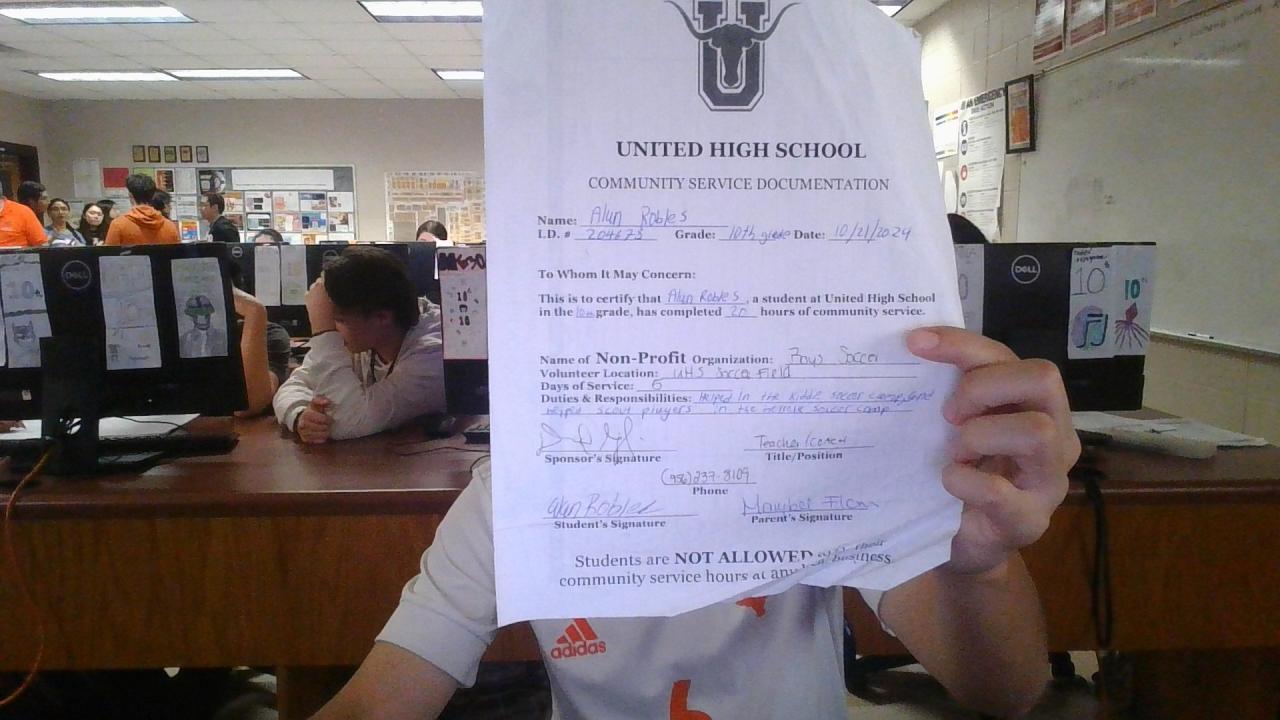 U
UNITED HIGH SCHOOL
COMMUNITY SERVICE DOCUMENTATION
Name: Alan Robles
I.D. # 204673 Grade: 10th grade Date: 10/21/2024
To Whom It May Concern:
This is to certify that Alan Robles, a student at United High School
in the 10th grade, has completed 20 hours of community service.
Name of Non-Profit Organization: Boys Soccer
Volunteer Location: UHS Soccer Field
Days of Service: 6
Duties & Responsibilities: Helped In the Kiddie soccer camp, and
helped scout players in the female soccer camp.
Teacher/coach
Sponsor's Signature Title/Position
(956)237-8109
Phone
Alan Robles Maribel Flores
Student's Signature Parent's Signature
Students are NOT ALLOWED their
community service hours at any business.
DELL
DELL
10
10
adidas
6